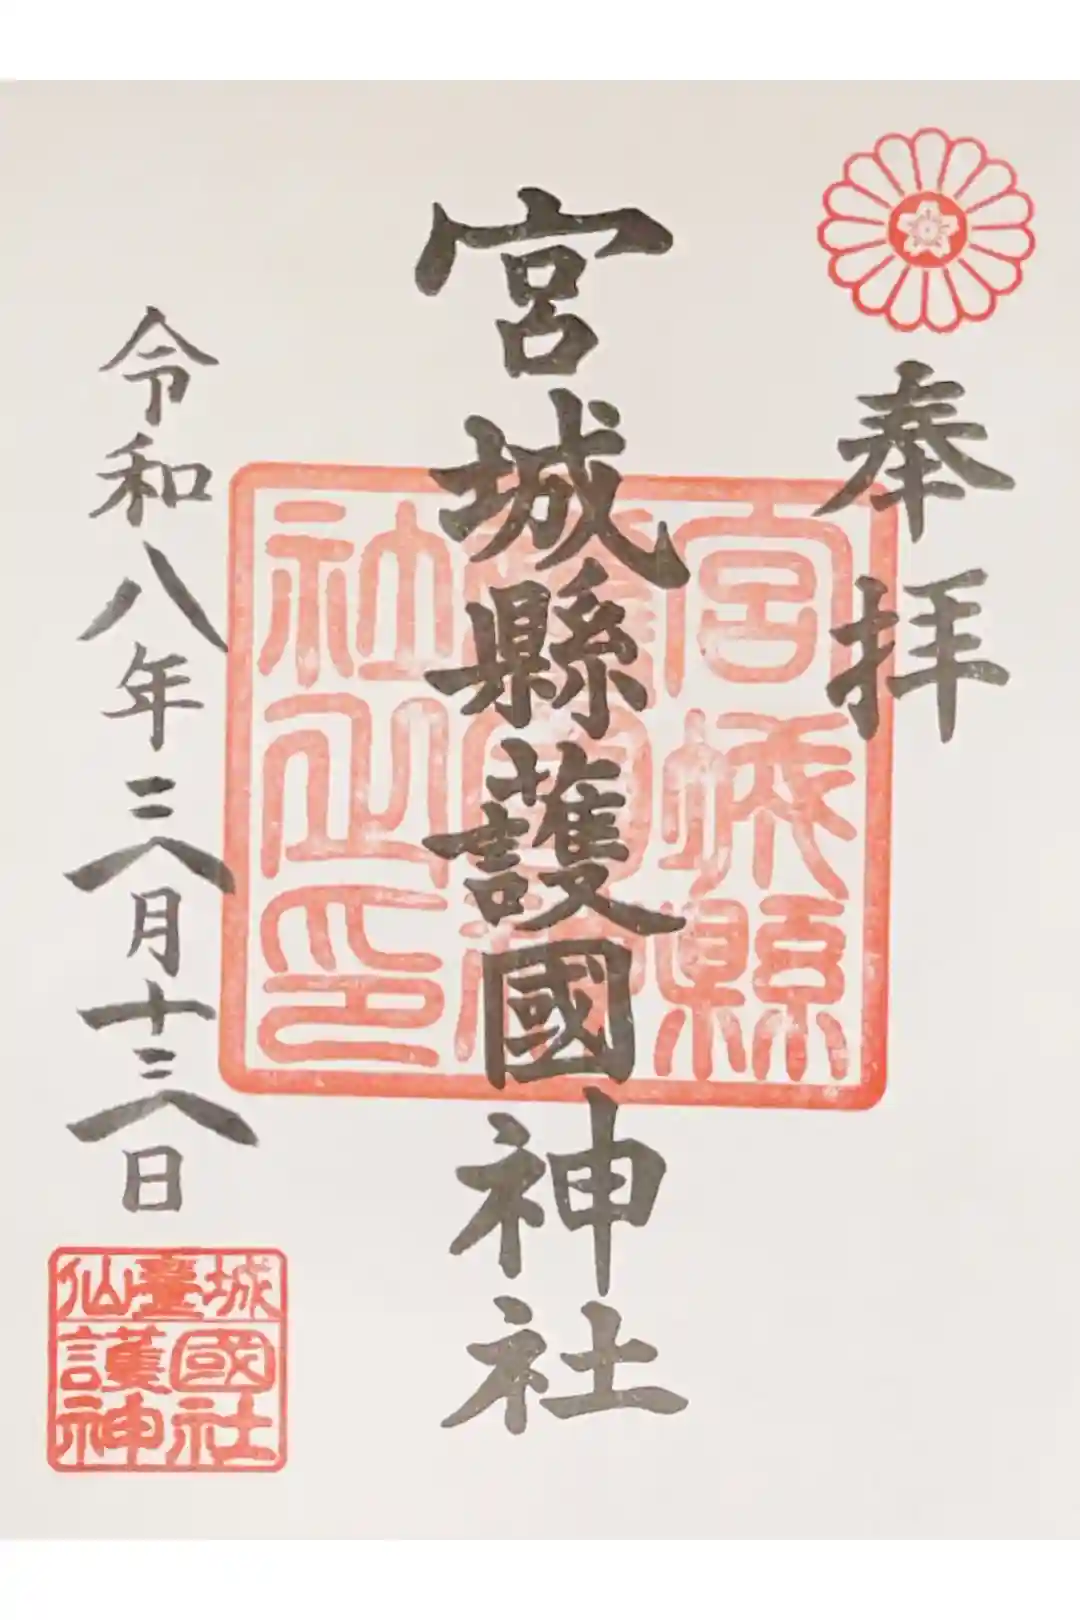 奉拝
宮城縣護國神社
令和八年三月十三日
宮城縣
護國神
社之印
仙臺城
護國
神社